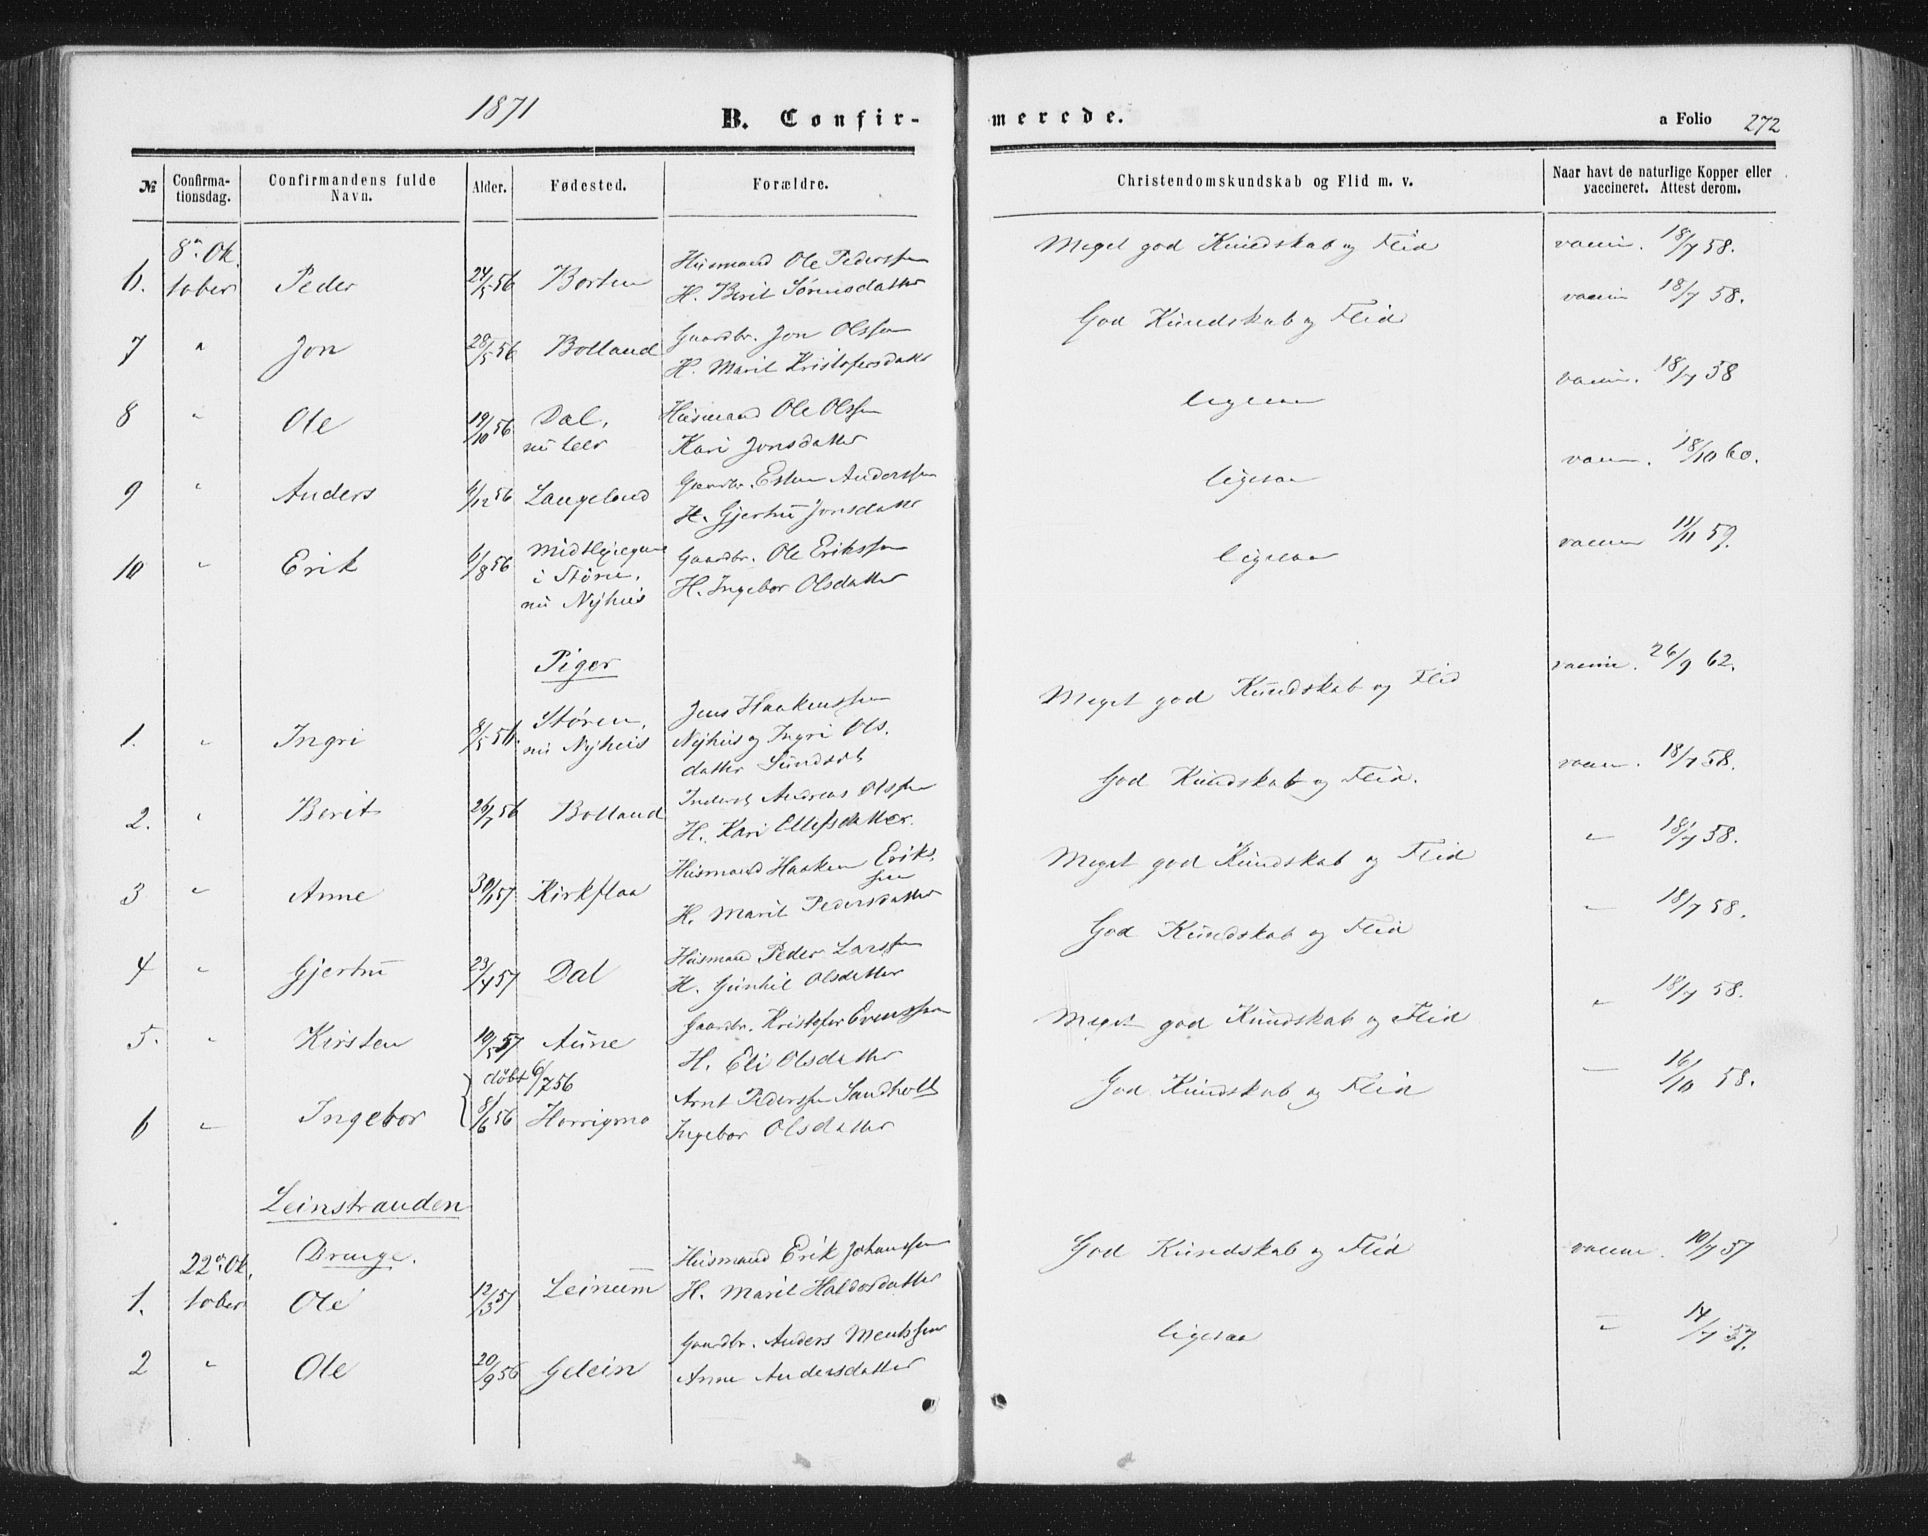 1871
B. Confirmerede.
a Folio 272
№ Confirmationsdag. Confirmandens fulde Navn. Alder. Fødested. Forældre. Christendomskundskab og Flid m. v. Naar havt de naturlige Kopper eller vaccineret. Attest derom.
6. 8de Oktober Peder 24/5 56 Borten Husmand Ole Pederssen
H. Berit Sørensdatter Meget god Kundskab og Flid vaccin. 18/7 58.
7 " Jon 28/5 56 Bolland Gaardbr. Jon Olssen
H. Marit Kristofersdatt God Kundskab og Flid vaccin 18/7 58.
8 " Ole 19/10 56 Dal, Husmand Ole Olssen
nu Leer Kari Jonsdatter ligesaa vaccin. 18/7 58
9 " Anders 6/12 56 Langeland Gaardbr. Esten Anderssen
H. Gjertru Jonsdatter ligesaa vaccin. 18/10 60.
10 " Erik 6/8 56 Gaardbr. Ole Erikssen
i Støren, H. Ingebor Olsdatter ligesaa vaccin 11/11 59.
nu Nyhus
Piger
1. " Ingri 8/5 56. Støren, Jens Haakenssen
nu Nyhus Nyhus og Ingri Ols-
datter Sundset Meget god Kundskab og Flid vaccin. 26/9 62.
2. " Berit 26/7 56 Bolland Inderst Andreas Olssen
H. Kari Ellefsdatter. God Kundskab og Flid. vaccin. 18/7 58.
3 " Anne 30/1 57 Kirkflaa Husmand Haaken Eriks-
sen
H. Marit Pedersdatter Meget god Kundskab og Flid " 18/7 58.
4 " Gjertru 23/4 57 Dal Husmand Peder Larssen
H. Gunhil Olsdatter God Kundskab og Flid " 18/7 58.
5. " Kirsten 10/5 57 Aune Gaardbr. Kristofer Evenssen
H. Eli Olsdatter Meget god Kundskab og Flid " 18/7 58.
døbt 6/7 56
6 " Ingebor 8/6 56 Horrigmo Arnt Pederssen Sandholt
Ingebor Olsdatter God Kundskab og Flid " 16/10 58.
Leinstranden
Drenge.
1. 22de Oktober Ole 12/3 57 Leinum Husmand Erik Johanssen
H. Marit Haldosdatter God Kundskab og Flid vaccin. 10/7 57
2 " Ole 20/9 56 Gelein Gaardbr. Anders Mentssen
Anne Andersdatter ligesaa " 14/7 57.